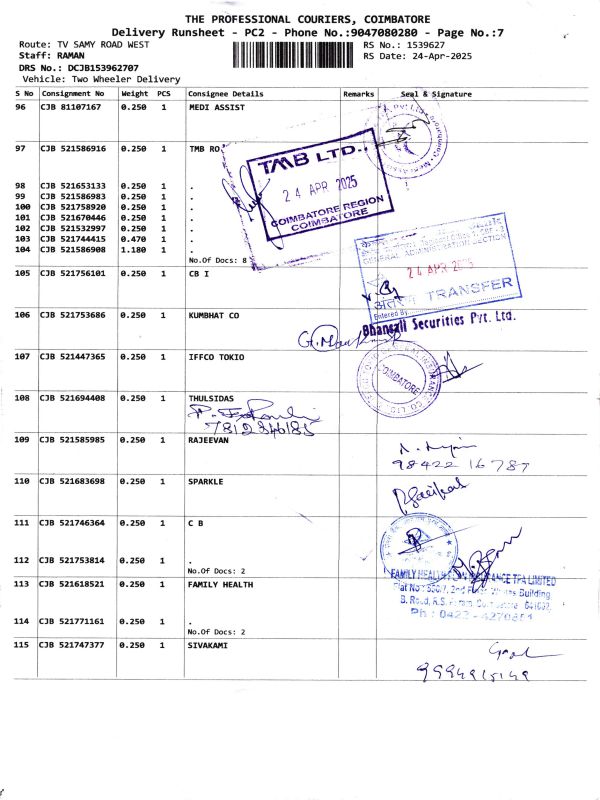 THE PROFESSIONAL COURIERS, COIMBATORE
Delivery Runsheet - PC2 - Phone No.:9047080280 - Page No.:7
Route: TV SAMY ROAD WEST
RS No.: 1539627
Staff: RAMAN
RS Date: 24-Apr-2025
DRS No.: DCJB153962707
Vehicle: Two Wheeler Delivery
S No Consignment No Weight PCS Consignee Details Remarks Seal & Signature
96 CJB 81107167 0.250 1 MEDI ASSIST
97 CJB 521586916 0.250 1 TMB RO
TMB LTD.,
24 APR 2025
COIMBATORE REGION
COIMBATORE
98 CJB 521653133 0.250 1 .
99 CJB 521586983 0.250 1 .
100 CJB 521758920 0.250 1 .
101 CJB 521670446 0.250 1 .
102 CJB 521532997 0.250 1 .
103 CJB 521744415 0.470 1 .
104 CJB 521586908 1.180 1 .
No.Of Docs: 8
GENERAL ADMINISTRATION SECTION
24 APR 2025
TRANSFER
Entered By
105 CJB 521756101 0.250 1 CB I
106 CJB 521753686 0.250 1 KUMBHAT CO
Bhansali Securities Pvt. Ltd.
107 CJB 521447365 0.250 1 IFFCO TOKIO
COIMBATORE
108 CJB 521694408 0.250 1 THULSIDAS
7812846185
109 CJB 521585985 0.250 1 RAJEEVAN
98422 16787
110 CJB 521683698 0.250 1 SPARKLE
111 CJB 521746364 0.250 1 C B
112 CJB 521753814 0.250 1 .
No.Of Docs: 2
113 CJB 521618521 0.250 1 FAMILY HEALTH
FAMILY HEALTH TPA LIMITED
2nd Floor Building
Ph : 0422 - 4270851
114 CJB 521771161 0.250 1 .
No.Of Docs: 2
115 CJB 521747377 0.250 1 SIVAKAMI
9994915149